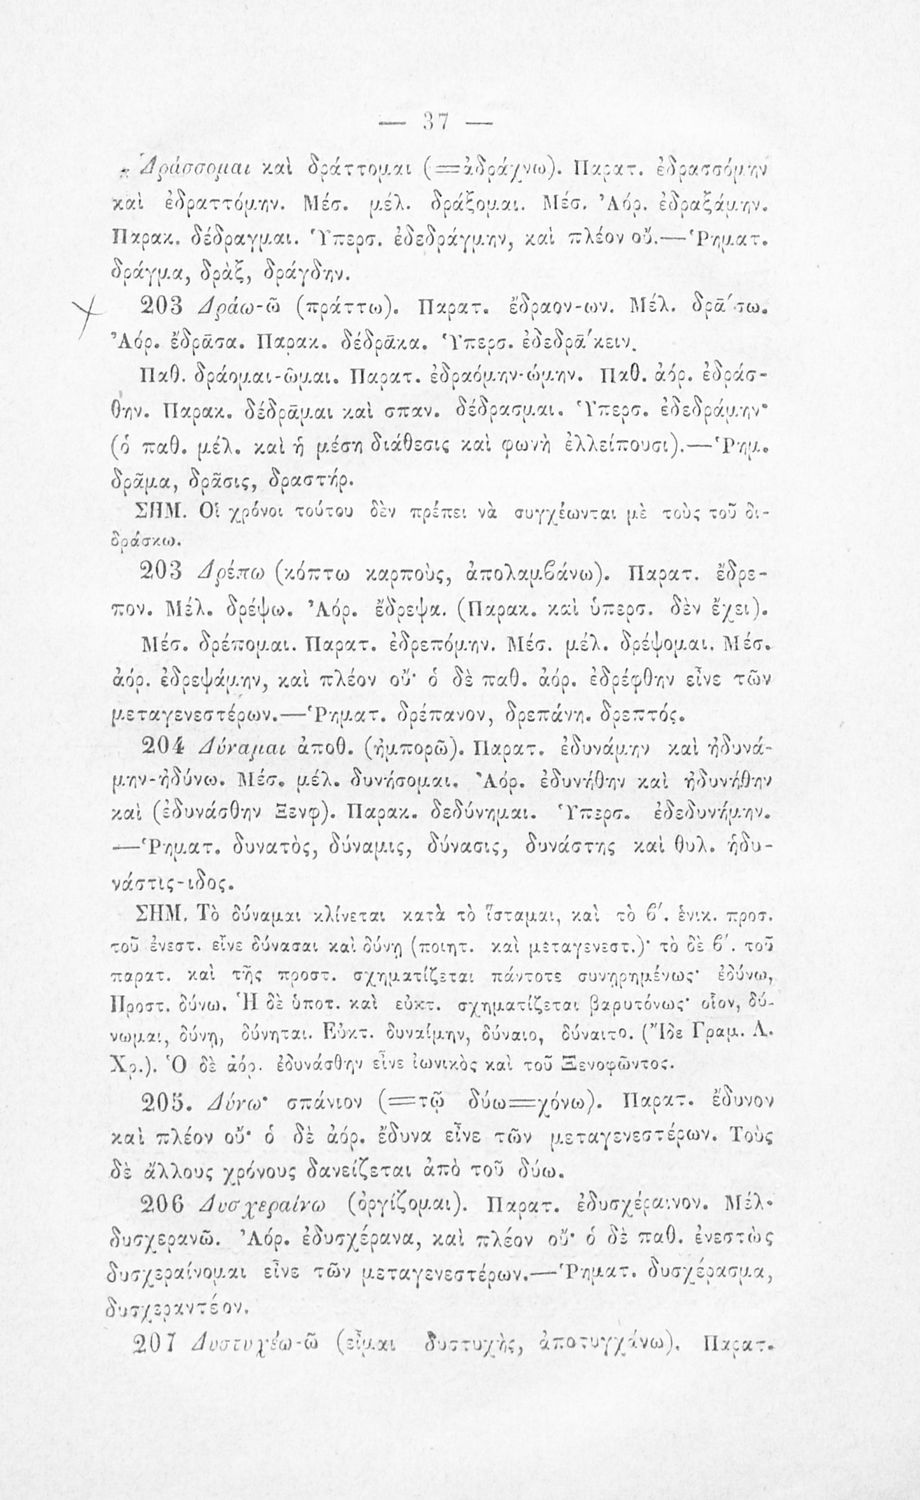 — 37 —
Δράσσομαι καὶ δράττομαι (=ἀδράχνω). Παρατ. ἐδρασσόμην
καὶ ἐδραττόμην. Μέσ. μέλ. δράξομαι. Μέσ. Ἀόρ. ἐδραξάμην.
Παρακ. δέδραγμαι. Ὑπερσ. ἐδεδράγμην, καὶ πλέον οὔ.—Ῥηματ.
δράγμα, δρὰξ, δράγδην.
203 Δράω-ῶ (πράττω). Παρατ. ἔδραον-ων. Μέλ. δρᾱ́σω.
Ἀόρ. ἔδρᾱσα. Παρακ. δέδρᾱκα. Ὑπερσ. ἐδεδρᾱ́κειν.
Παθ. δράομαι-ῶμαι. Παρατ. ἐδραόμην-ώμην. Παθ. ἀόρ. ἐδράσ-
θην. Παρακ. δέδρᾱμαι καὶ σπαν. δέδρασμαι. Ὑπερσ. ἐδεδράμην·
(ὁ παθ. μέλ. καὶ ἡ μέση διάθεσις καὶ φωνὴ ἐλλείπουσι).—Ῥημ.
δρᾶμα, δρᾶσις, δραστήρ.
ΣΗΜ. Οἱ χρόνοι τούτου δὲν πρέπει νὰ συγχέωνται μὲ τοὺς τοῦ δι-
δράσκω.
203 Δρέπω (κόπτω καρποὺς, ἀπολαμβάνω). Παρατ. ἔδρε-
πον. Μέλ. δρέψω. Ἀόρ. ἔδρεψα. (Παρακ. καὶ ὑπερσ. δὲν ἔχει).
Μέσ. δρέπομαι. Παρατ. ἐδρεπόμην. Μέσ. μέλ. δρέψομαι. Μέσ.
ἀόρ. ἐδρεψάμην, καὶ πλέον οὔ· ὁ δὲ παθ. ἀόρ. ἐδρέφθην εἶνε τῶν
μεταγενεστέρων.—Ῥηματ. δρέπανον, δρεπάνη. δρεπτός.
204 Δύναμαι ἀποθ. (ἠμπορῶ). Παρατ. ἐδυνάμην καὶ ἠδυνά-
μην-ἠδύνω. Μέσ. μέλ. δυνήσομαι. Ἀόρ. ἐδυνήθην καὶ ἠδυνήθην
καὶ (ἐδυνάσθην Ξενφ). Παρακ. δεδύνημαι. Ὑπερσ. ἐδεδυνήμην.
—Ῥηματ. δυνατὸς, δύναμις, δύνασις, δυνάστης καὶ θυλ. ἡδυ-
νάστις-ιδος.
ΣΗΜ. Τὸ δύναμαι κλίνεται κατὰ τὸ ἵσταμαι, καὶ τὸ β΄. ἑνικ. προσ.
τοῦ ἐνεστ. εἶνε δύνασαι καὶ δύνῃ (ποιητ. καὶ μεταγενεστ.)· τὸ δὲ β΄. τοῦ
παρατ. καὶ τῆς προστ. σχηματίζεται πάντοτε συνῃρημένως· ἐδύνω,
Προστ. δύνω. Ἡ δὲ ὑποτ. καὶ εὐκτ. σχηματίζεται βαρυτόνως· οἷον, δύ-
νωμαι, δύνῃ, δύνηται. Εὐκτ. δυναίμην, δύναιο, δύναιτο. (Ἴδε Γραμ. Λ.
Χρ.). Ὁ δὲ ἀόρ. ἐδυνάσθην εἶνε ἰωνικὸς καὶ τοῦ Ξενοφῶντος.
205. Δύνω· σπάνιον (=τῷ δύω=χόνω). Παρατ. ἔδυνον
καὶ πλέον οὔ· ὁ δὲ ἀόρ. ἔδυνα εἶνε τῶν μεταγενεστέρων. Τοὺς
δὲ ἄλλους χρόνους δανείζεται ἀπὸ τοῦ δύω.
206 Δυσχεραίνω (ὀργίζομαι). Παρατ. ἐδυσχέραινον. Μέλ.
δυσχερανῶ. Ἀόρ. ἐδυσχέρανα, καὶ πλέον οὔ· ὁ δὲ παθ. ἐνεστὼς
δυσχεραίνομαι εἶνε τῶν μεταγενεστέρων.—Ῥηματ. δυσχέρασμα,
δυσχεραντέον.
207 Δυστυχέω-ῶ (εἶμαι δυστυχὴς, ἀποτυγχάνω). Παρατ.